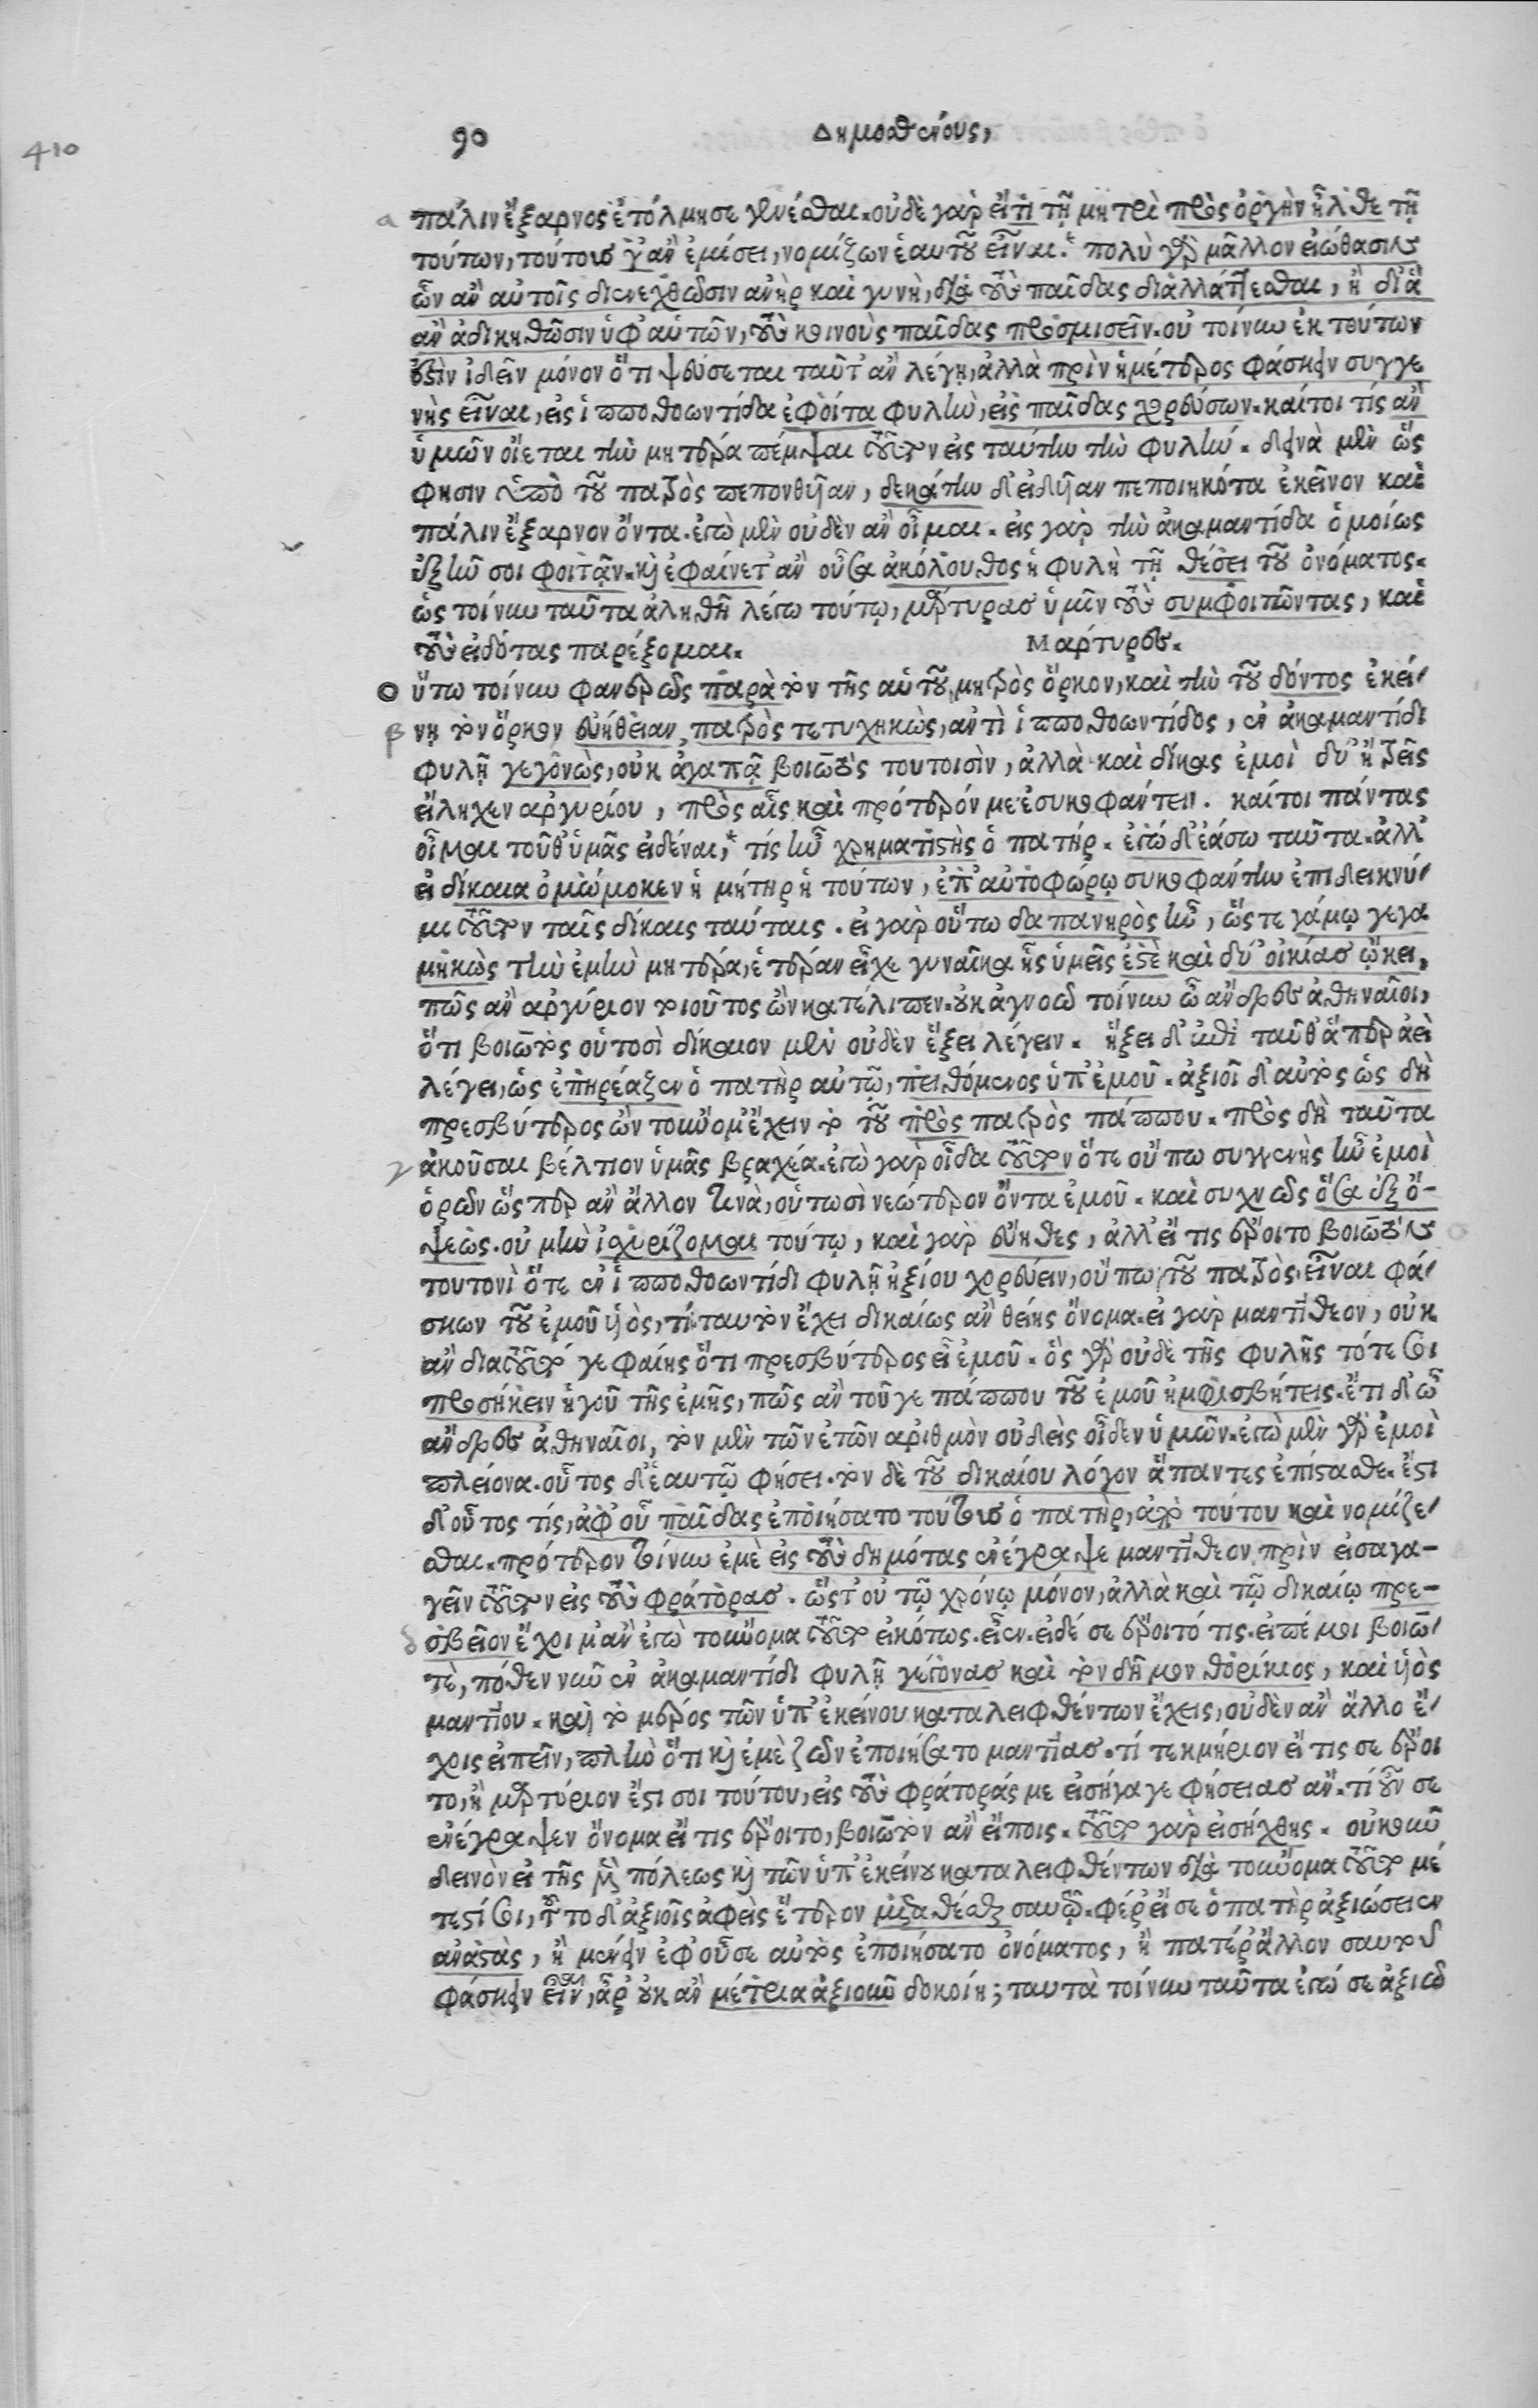 410
90
Δημοσθένους,
α
πάλιν ἔξαρνος ἐτόλμησε γενέσθαι. οὐδὲ γὰρ εἴ τι τῇ μητρὶ πρὸς ὀργὴν ἦλθε τῇ
τούτων, τούτους γ᾽ ἂν ἐμίσει, νομίζων ἑαυτοῦ εἶναι. πολὺ γὰρ μᾶλλον εἰώθασιν
ὧν ἂν αὐτοῖς διενεχθῶσιν ἀνὴρ καὶ γυνὴ, διὰ τοὺς παῖδας διαλλάττεσθαι, ἢ δι᾽ ἃ
ἂν ἀδικηθῶσιν ὑφ᾽ αὑτῶν, τοὺς κοινοὺς παῖδας προσμισεῖν. οὐ τοίνυν ἐκ τούτων
ἐστὶν ἰδεῖν μόνον ὅτι ψεύσεται ταῦτ᾽ ἂν λέγῃ, ἀλλὰ πρὶν ἡμέτερος φάσκειν συγγε
νὴς εἶναι, εἰς ἱπποθοωντίδα ἐφοίτα φυλὴν, εἰς παῖδας χορεύσων. καίτοι τίς ἂν
ὑμῶν οἴεται τὴν μητέρα πέμψαι τοῦτον εἰς ταύτην τὴν φυλήν. δεινὰ μὲν ὥς
φησιν ὑπὸ τοῦ πατρὸς πεπονθυῖαν, δεκάτην δ᾽ εἰδυῖαν πεποιηκότα ἐκεῖνον καὶ
πάλιν ἔξαρνον ὄντα. ἐγὼ μὲν οὐδὲν ἂν οἶμαι. εἰς γὰρ τὴν ἀκαμαντίδα ὁμοίως
ἐξῆν σοι φοιτᾷν. καὶ ἐφαίνετ᾽ ἂν οὖσα ἀκόλουθος ἡ φυλὴ τῇ θέσει τοῦ ὀνόματος.
ὡς τοίνυν ταῦτα ἀληθῆ λέγω τούτῳ, μάρτυρας ὑμῖν τοὺς συμφοιτῶντας, καὶ
τοὺς εἰδότας παρέξομαι. Μάρτυρες.
Οὕτω τοίνυν φανερῶς παρὰ τὸν τῆς αὑτοῦ μητρὸς ὅρκον, καὶ τὴν τοῦ δόντος ἐκεί
β
νῃ τὸν ὅρκον εὐήθειαν, πατρὸς τετυχηκὼς, ἀντὶ ἱπποθοωντίδος, ἐν ἀκαμαντίδι
φυλῇ γεγονὼς, οὐκ ἀγαπᾷ βοιωτὸς τουτοισὶν, ἀλλὰ καὶ δίκας ἐμοὶ δύ᾽ ἢ τρεῖς
εἴληχεν ἀργυρίου, πρὸς αἷς καὶ πρότερόν με ἐσυκοφάντει. καίτοι πάντας
οἶμαι τοῦθ᾽ ὑμᾶς εἰδέναι, τίς ἦν χρηματιστὴς ὁ πατήρ. ἐγὼ δ᾽ ἐάσω ταῦτα. ἀλλ᾽
εἰ δίκαια ὀμώμοκεν ἡ μήτηρ ἡ τούτων, ἐπ᾽ αὐτοφώρῳ συκοφάντην ἐπιδεικνύ
μι τοῦτον ταῖς δίκαις ταύταις. εἰ γὰρ οὕτω δαπανηρὸς ἦν, ὥστε γάμῳ γεγα
μηκὼς τὴν ἐμὴν μητέρα, ἑτέραν εἶχε γυναῖκα ἧς ὑμεῖς ἐστὲ καὶ δύ᾽ οἰκίας ᾤκει,
πῶς ἂν ἀργύριον τοιοῦτος ὢν κατέλιπεν. οὐκ ἀγνοῶ τοίνυν ὦ ἄνδρες ἀθηναῖοι,
ὅτι βοιωτὸς οὑτοσὶ δίκαιον μὲν οὐδὲν ἕξει λέγειν. ἥξει δ᾽ ἐπὶ ταῦθ᾽ ἅπερ ἀεὶ
λέγει, ὡς ἐπηρέαζεν ὁ πατὴρ αὐτῷ, πειθόμενος ὑπ᾽ ἐμοῦ. ἀξιοῖ δ᾽ αὐτὸς ὡς δὴ
πρεσβύτερος ὢν τοὔνομ᾽ ἔχειν τὸ τοῦ πρὸς πατρὸς πάππου. πρὸς δὴ ταῦτα
γ
ἀκοῦσαι βέλτιον ὑμᾶς βραχέα. ἐγὼ γὰρ οἶδα τοῦτον ὅτε οὔπω συγγενὴς ἦν ἐμοὶ
ὁρῶν ὥσπερ ἂν ἄλλον τινὰ, οὑτωσὶ νεώτερον ὄντα ἐμοῦ. καὶ συχνῶς ὅσα ἐξ ὄ-
ψεως. οὐ μὴν ἰσχυρίζομαι τούτῳ, καὶ γὰρ εὔηθες, ἀλλ᾽ εἴ τις ἔροιτο βοιωτὸν
τουτονὶ ὅτε ἐν ἱπποθοωντίδι φυλῇ ἠξίου χορεύειν, οὔπω τοῦ πατρὸς εἶναι φά
σκων τοῦ ἐμοῦ υἱὸς, τί ταυτὸν ἔχει δικαίως ἂν θείης ὄνομα. εἰ γὰρ μαντίθεον, οὐκ
ἂν διὰ τοῦτό γε φαίης ὅτι πρεσβύτερος εἶ ἐμοῦ. ὃς γὰρ οὐδὲ τῆς φυλῆς τότε σοι
προσήκειν ἡγοῦ τῆς ἐμῆς, πῶς ἂν τοῦ γε πάππου τοῦ ἐμοῦ ἠμφισβήτεις. ἔτι δ᾽ ὦ
ἄνδρες ἀθηναῖοι, τὸν μὲν τῶν ἐτῶν ἀριθμὸν οὐδεὶς οἶδεν ὑμῶν. ἐγὼ μὲν γὰρ ἐμοὶ
πλείονα. οὗτος δ᾽ ἑαυτῷ φήσει. τὸν δὲ τοῦ δικαίου λόγον ἅπαντες ἐπίστασθε. ἔστι
δ᾽ οὗτος τίς, ἀφ᾽ οὗ παῖδας ἐποιήσατο τούτους ὁ πατὴρ, ἀπὸ τούτου καὶ νομίζε
σθαι. πρότερον τοίνυν ἐμὲ εἰς τοὺς δημότας ἐνέγραψε μαντίθεον, πρὶν εἰσαγα-
γεῖν τοῦτον εἰς τοὺς φράτορας. ὥστ᾽ οὐ τῷ χρόνῳ μόνον, ἀλλὰ καὶ τῷ δικαίῳ πρε-
δ
σβεῖον ἔχοιμ᾽ ἂν ἐγὼ τοὔνομα τοῦτο εἰκότως. εἶεν. εἰ δέ σε ἔροιτό τις. εἰπέ μοι βοιω
τὲ, πόθεν νῦν ἐν ἀκαμαντίδι φυλῇ γέγονας καὶ τὸν δῆμον θορίκιος, καὶ υἱὸς
μαντίου. καὶ τὸ μέρος τῶν ὑπ᾽ ἐκείνου καταλειφθέντων ἔχεις, οὐδὲν ἂν ἄλλο ἔ
χοις εἰπεῖν, πλὴν ὅτι καὶ ἐμὲ ζῶν ἐποιήσατο μαντίας. τί τεκμήριον εἴ τις σε ἔροι
το, ἢ μαρτύριον ἔστι σοι τούτου, εἰς τοὺς φράτοράς με εἰσήγαγε φήσειας ἄν. τί οὖν σε
ἐνέγραψεν ὄνομα εἴ τις ἔροιτο, βοιωτὸν ἂν εἴποις. τοῦτο γὰρ εἰσήχθης. οὐκοῦν
δεινὸν εἰ τῆς μὲν πόλεως καὶ τῶν ὑπ᾽ ἐκείνου καταλειφθέντων διὰ τοὔνομα τοῦτο μέ
τεστί σοι, τοῦτο δ᾽ ἀξιοῖς ἀφεὶς ἕτερον μεταθέσθαι σαυτῷ. φέρ᾽ εἴ σε ὁ πατὴρ ἀξιώσειεν
ἀναστὰς, ἢ μένειν ἐφ᾽ οὗ σε αὐτὸς ἐποιήσατο ὀνόματος, ἢ πατέρ᾽ ἄλλον σαυτοῦ
φάσκειν εἶναι, ἆρ᾽ οὐκ ἂν μέτρια ἀξιοῦν δοκοίη; ταυτὰ τοίνυν ταῦτα ἐγώ σε ἀξιῶ